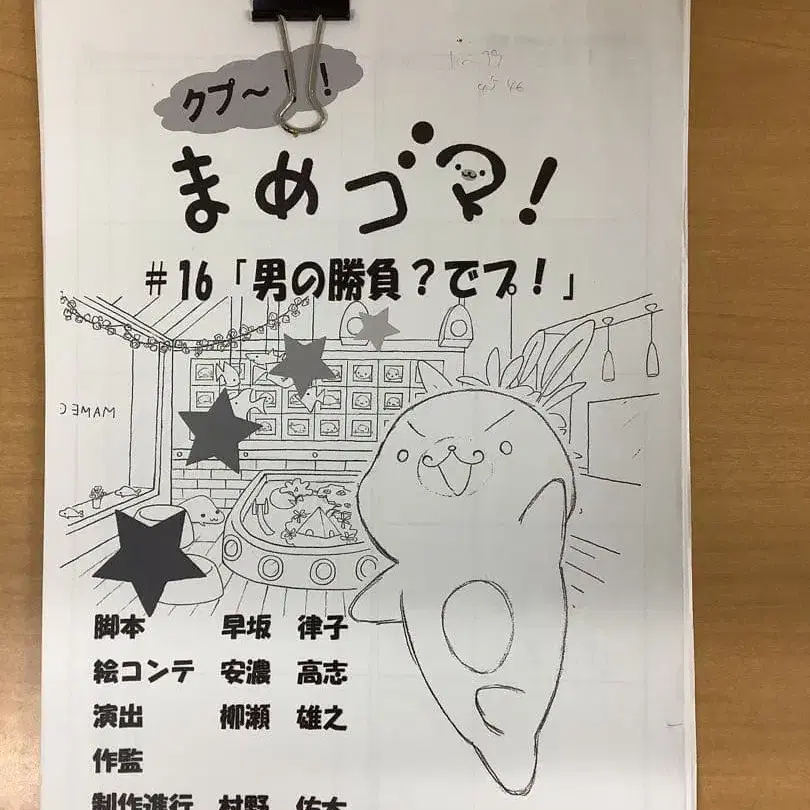 クプ～！！
まめゴマ！
＃16「男の勝負？でプ！」
MAME
脚本 早坂 律子
絵コンテ 安濃 高志
演出 柳瀬 雄之
作監
制作進行 村野 佑太